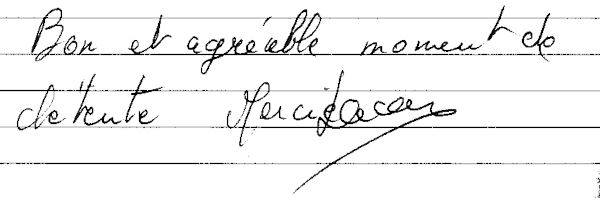 Bon et agréable moment de
détente Merci